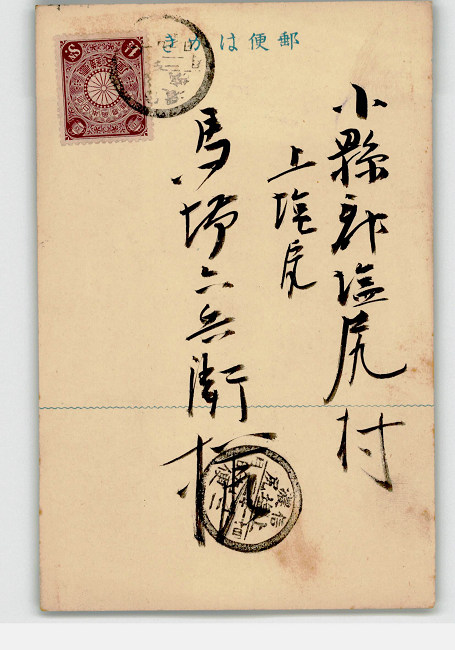 郵便はかき
小縣郡塩尻村
上塩尻
馬場六兵衛様